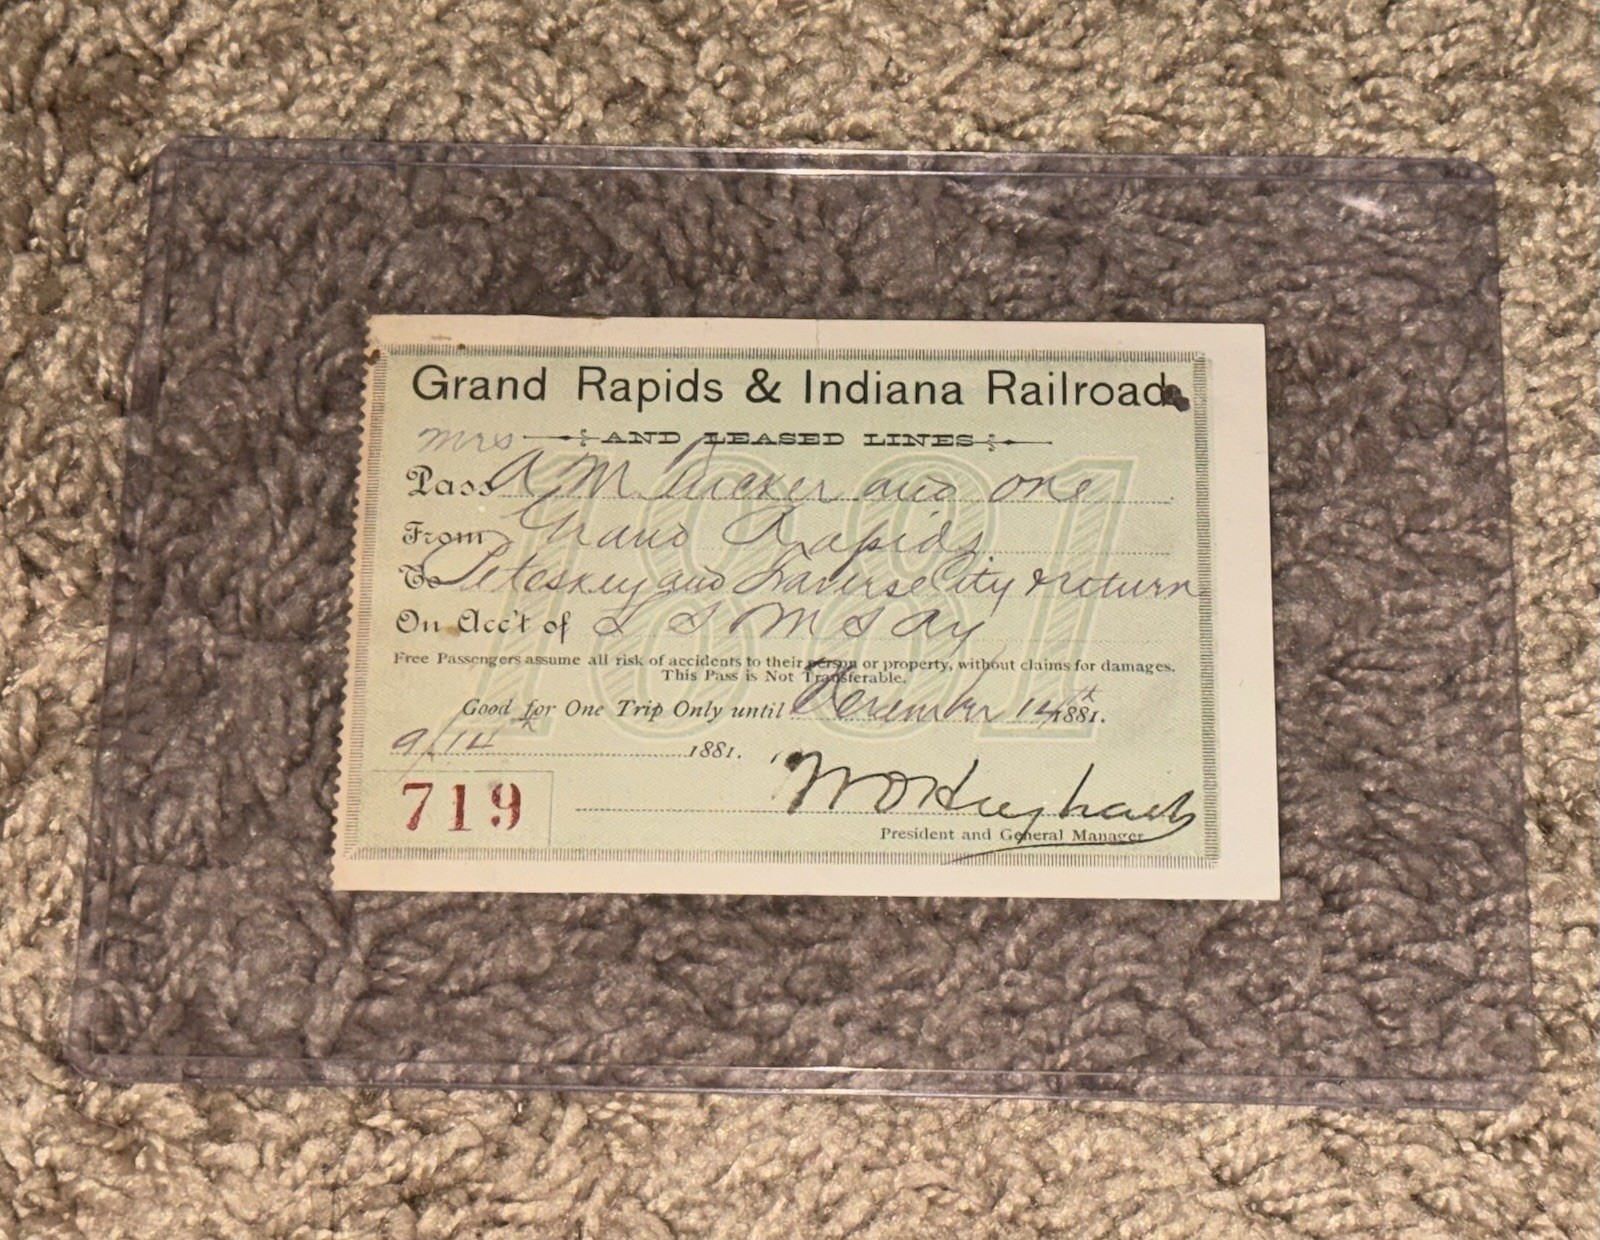 Grand Rapids & Indiana Railroad
AND LEASED LINES
Mrs
Pass A M Tucker and one
From Grand Rapids
To Petoskey and Traverse City & return
On Acc't of L S & M S Ry
Free Passengers assume all risk of accidents to their person or property, without claims for damages.
This Pass is Not Transferable.
Good for One Trip Only until December 14th 1881.
9/14th 1881.
W O Hughart
719
President and General Manager
1881